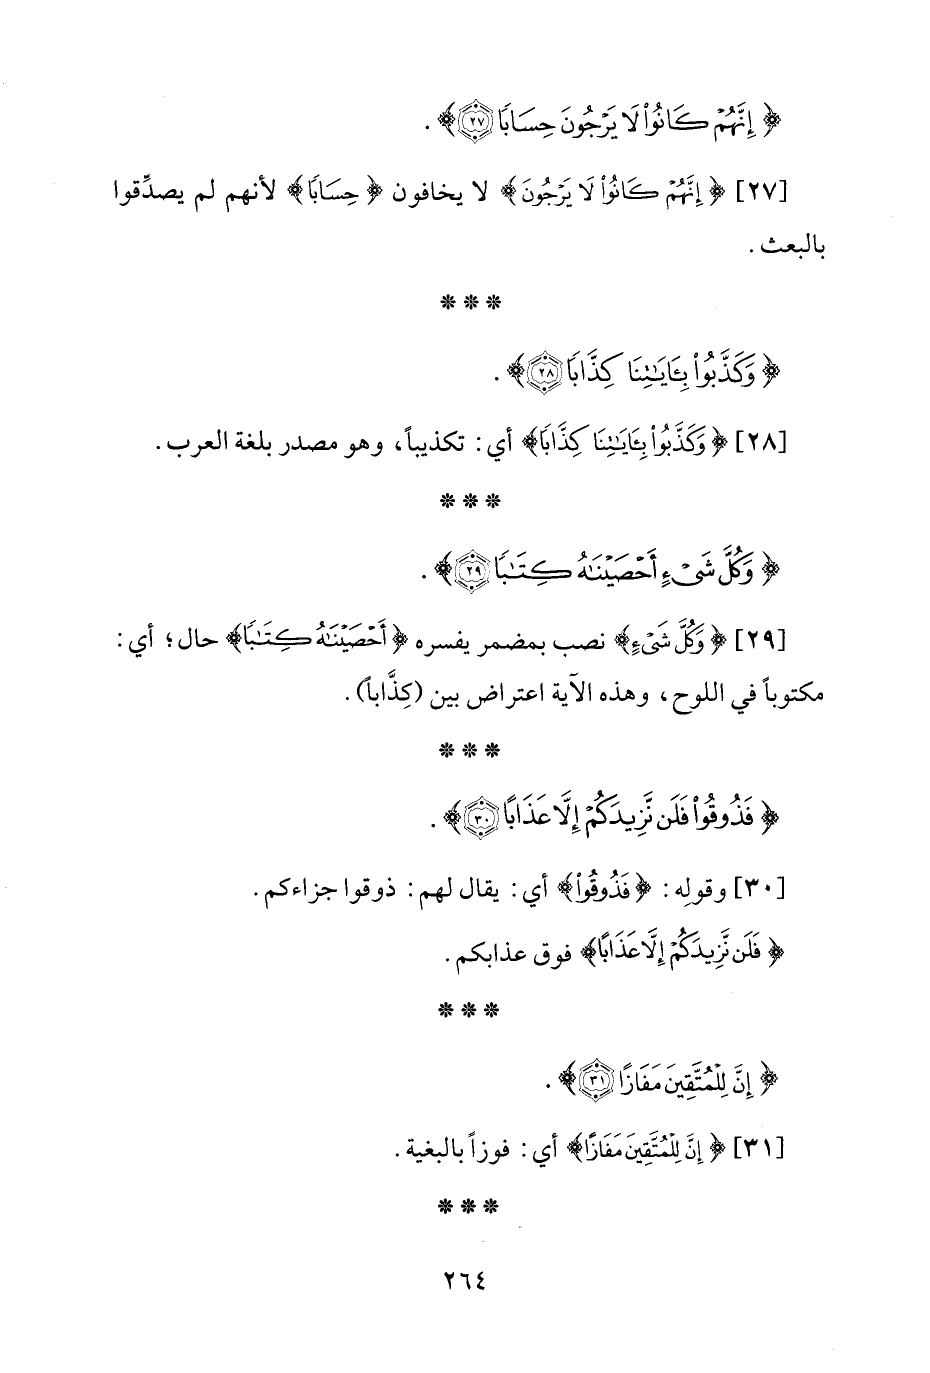 ﴿ إِنَّهُمْ كَانُوا۟ لَا يَرْجُونَ حِسَابًا ٢٧ ﴾ .
[٢٧] ﴿ إِنَّهُمْ كَانُوا۟ لَا يَرْجُونَ ﴾ لا يخافون ﴿ حِسَابًا ﴾ لأنهم لم يصدِّقوا
بالبعث .
* * *
﴿ وَكَذَّبُوا۟ بِـَٔايَـٰتِنَا كِذَّابًا ٢٨ ﴾ .
[٢٨] ﴿ وَكَذَّبُوا۟ بِـَٔايَـٰتِنَا كِذَّابًا ﴾ أي: تكذيباً، وهو مصدر بلغة العرب .
* * *
﴿ وَكُلَّ شَىْءٍ أَحْصَيْنَـٰهُ كِتَـٰبًا ٢٩ ﴾ .
[٢٩] ﴿ وَكُلَّ شَىْءٍ ﴾ نصب بمضمر يفسره ﴿ أَحْصَيْنَـٰهُ كِتَـٰبًا ﴾ حال؛ أي:
مكتوباً في اللوح، وهذه الآية اعتراض بين (كِذَّاباً) .
* * *
﴿ فَذُوقُوا۟ فَلَن نَّزِيدَكُمْ إِلَّا عَذَابًا ٣٠ ﴾ .
[٣٠] وقولِه: ﴿ فَذُوقُوا۟ ﴾ أي: يقال لهم: ذوقوا جزاءكم .
﴿ فَلَن نَّزِيدَكُمْ إِلَّا عَذَابًا ﴾ فوق عذابكم .
* * *
﴿ إِنَّ لِلْمُتَّقِينَ مَفَازًا ٣١ ﴾ .
[٣١] ﴿ إِنَّ لِلْمُتَّقِينَ مَفَازًا ﴾ أي: فوزاً بالبغية .
* * *
٢٦٤